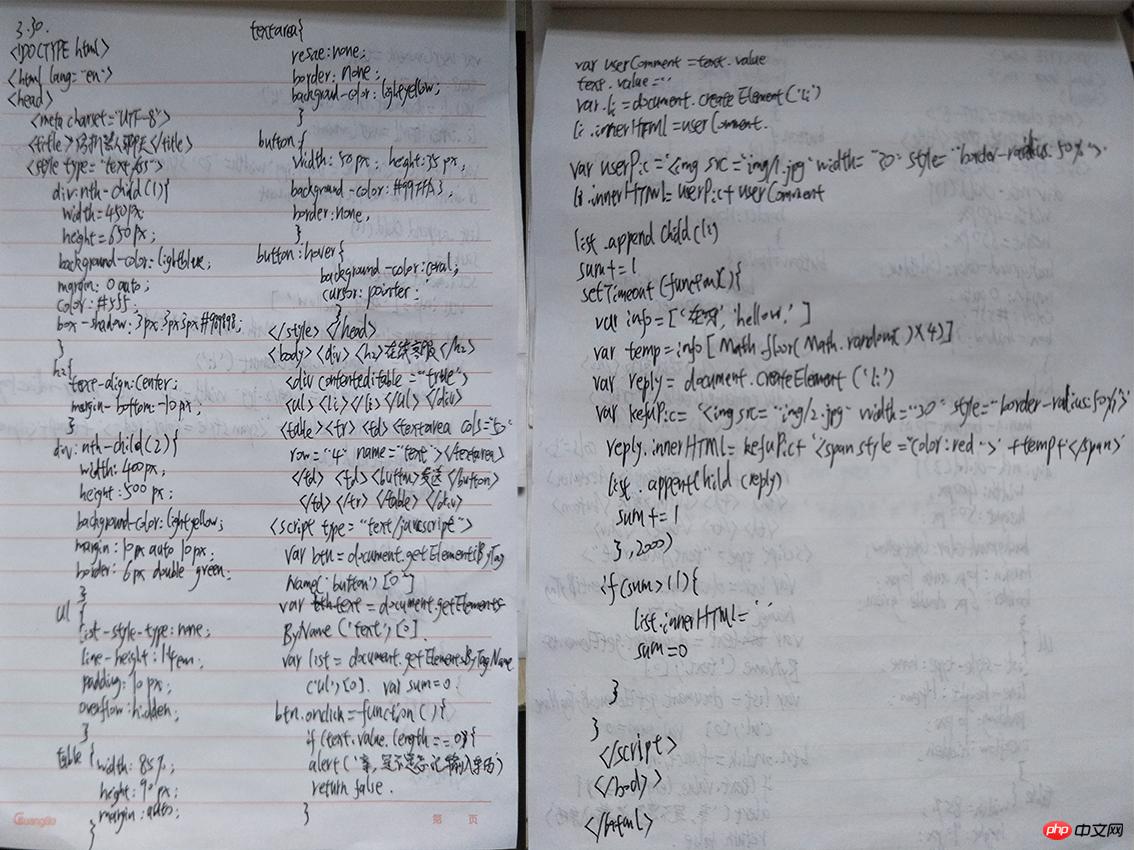 3.30.
<!DOCTYPE html>
<html lang="en">
<head>
<meta charset="UTF-8">
<title></title>
<style type="text/css">
div:nth-child(1){
width=450px
height=650px;
background-color:lightblue;
margin: 0 auto;
color:#555;
box-shadow: 3px 3px 3px #989898;
}
h2{
text-align:center;
margin-bottom:-10px;
}
div:nth-child(2){
width:400px;
height:500px;
background-color:lightyellow;
margin:10px auto 10px;
border:6px double green;
}
ul {
list-style-type:none;
line-height:1.4em;
padding:10px;
overflow:hidden;
}
table {
width:85%;
height:90px;
margin:auto;
}
textarea{
border:none;
background-color:lightyellow;
}
button{
width:50px; height:35px;
background-color:
border:none,
}
button:hover{
background-color:coral;
cursor:pointer;
}
</style></head>
<body><div><h2>在线客服</h2>
<div contenteditable="true">
<ul><li></li></ul></div>
<table><tr><td><textarea cols="50"
row="4" name="text"></textarea>
</td><td><button>发送</button>
</td></tr></table></div>
<script type="text/javascript">
var btn=document.getElementsByTag
Name('button')[0]
var text=document.getElements
ByName('text')[0].
var list=document.getElementsByTagName
('ul')[0]. var sum=0
btn.onclick=function(){
if(text.value.length==0){
alert(
return false.
}
第 页
var userComment=text.value
text.value=''
var.li=document.createElement('li')
li.innerHTML=userComment.
var userPic='<img src="img/1.jpg" width="30" style="border-radius:50%">'.
li.innerHTML=userPic+userComment
list.appendChild(li)
sum+=1
setTimeout(function(){
var info=[ 'hellow.']
var temp=info[Math.floor(Math.random()×4)]
var reply=document.createElement('li')
var kefuPic='<img src="img/2.jpg" width="30" style="border-radius:50%">'
reply.innerHTML=kefuPic+'<span style="color:red">'+temp+'</span>
list.appentChild(reply)
sum+=1
},2000)
if(sum>11){
list.innerHTML=''
sum=0
}
}
</script>
</body>
</html>
php 中文网